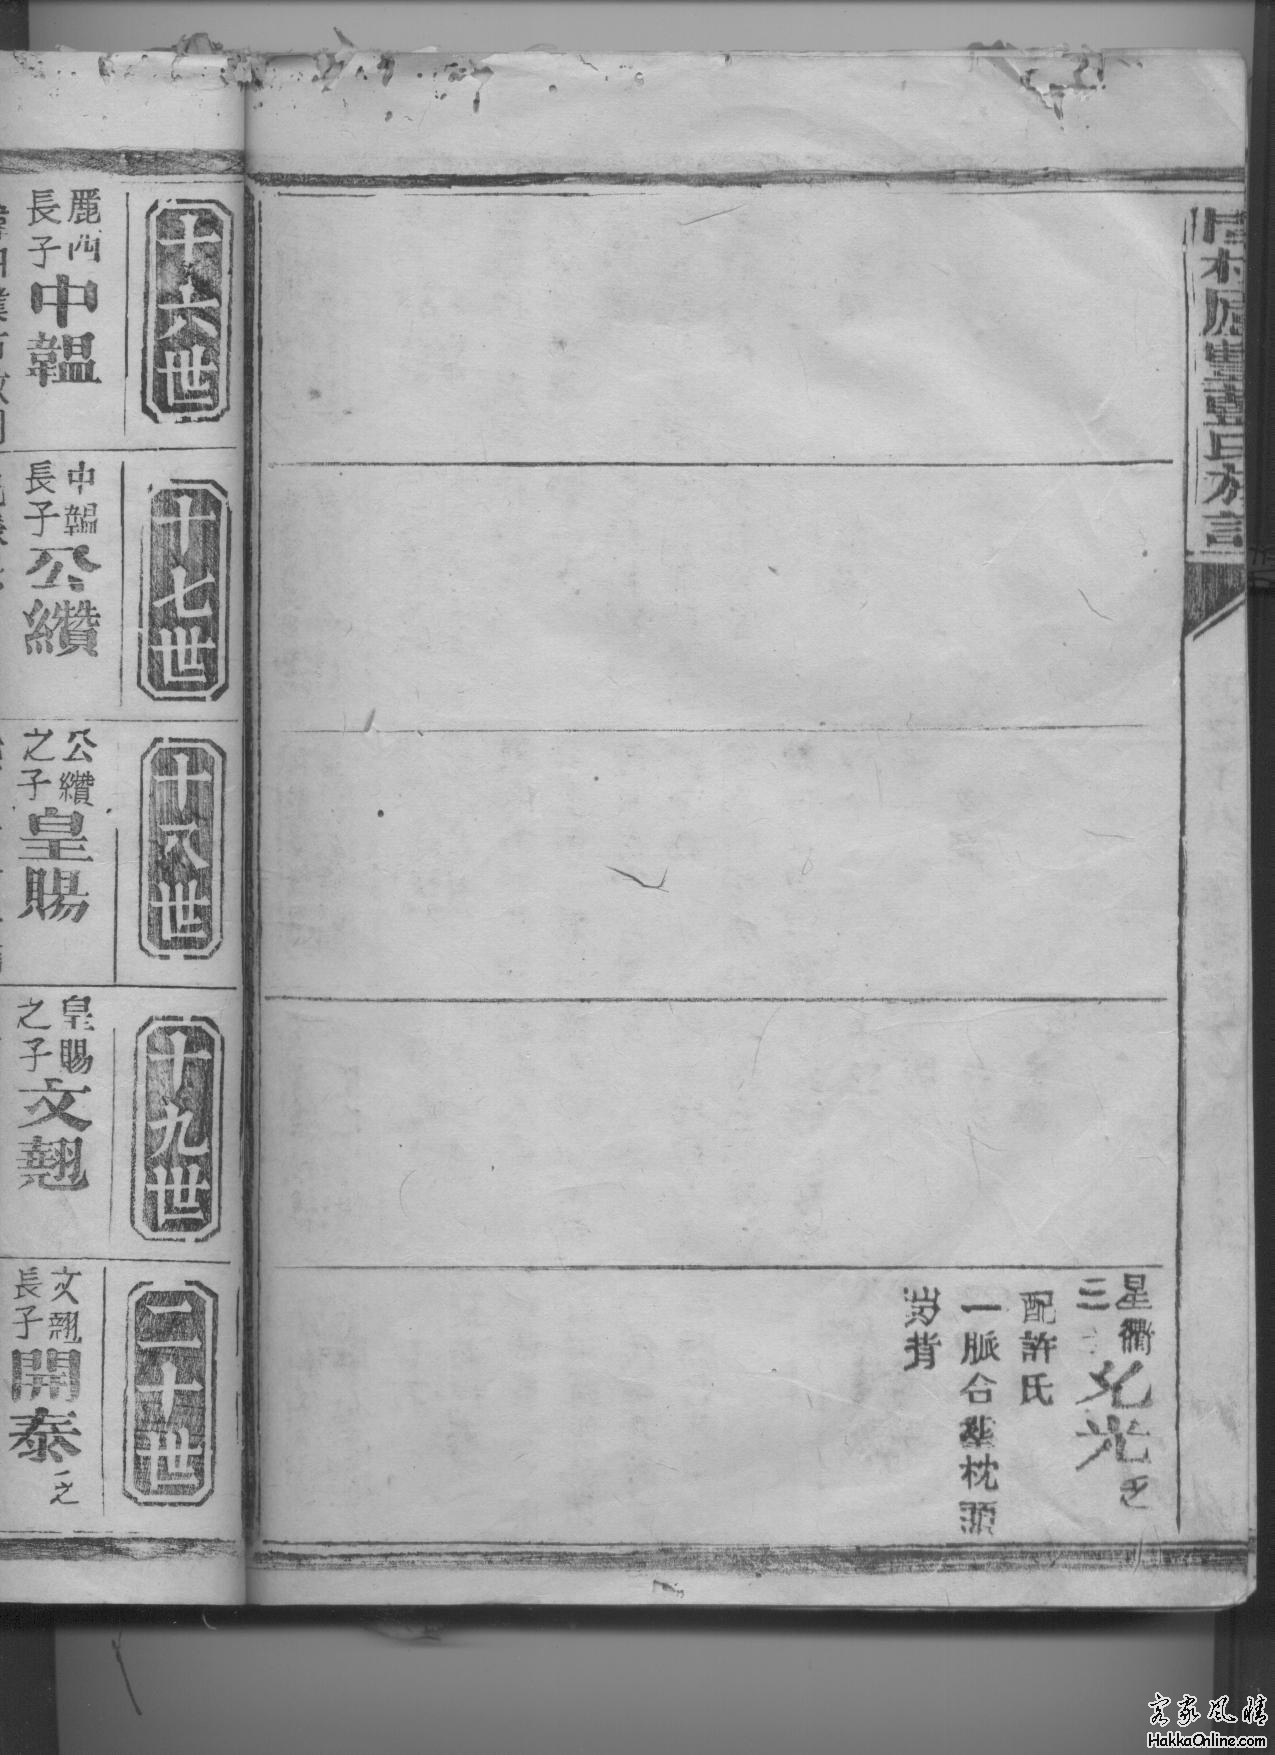 星衢
三
允光乏
配許氏
一脈合塟枕頭
背
十六世
十七世
十八世
十九世
二十世
麗
長子中韞
中韞
長子公纘
公纘
之子皇賜
皇賜
之子文翹
文翹
長子開泰乏
客家风情
HakkaOnline.com